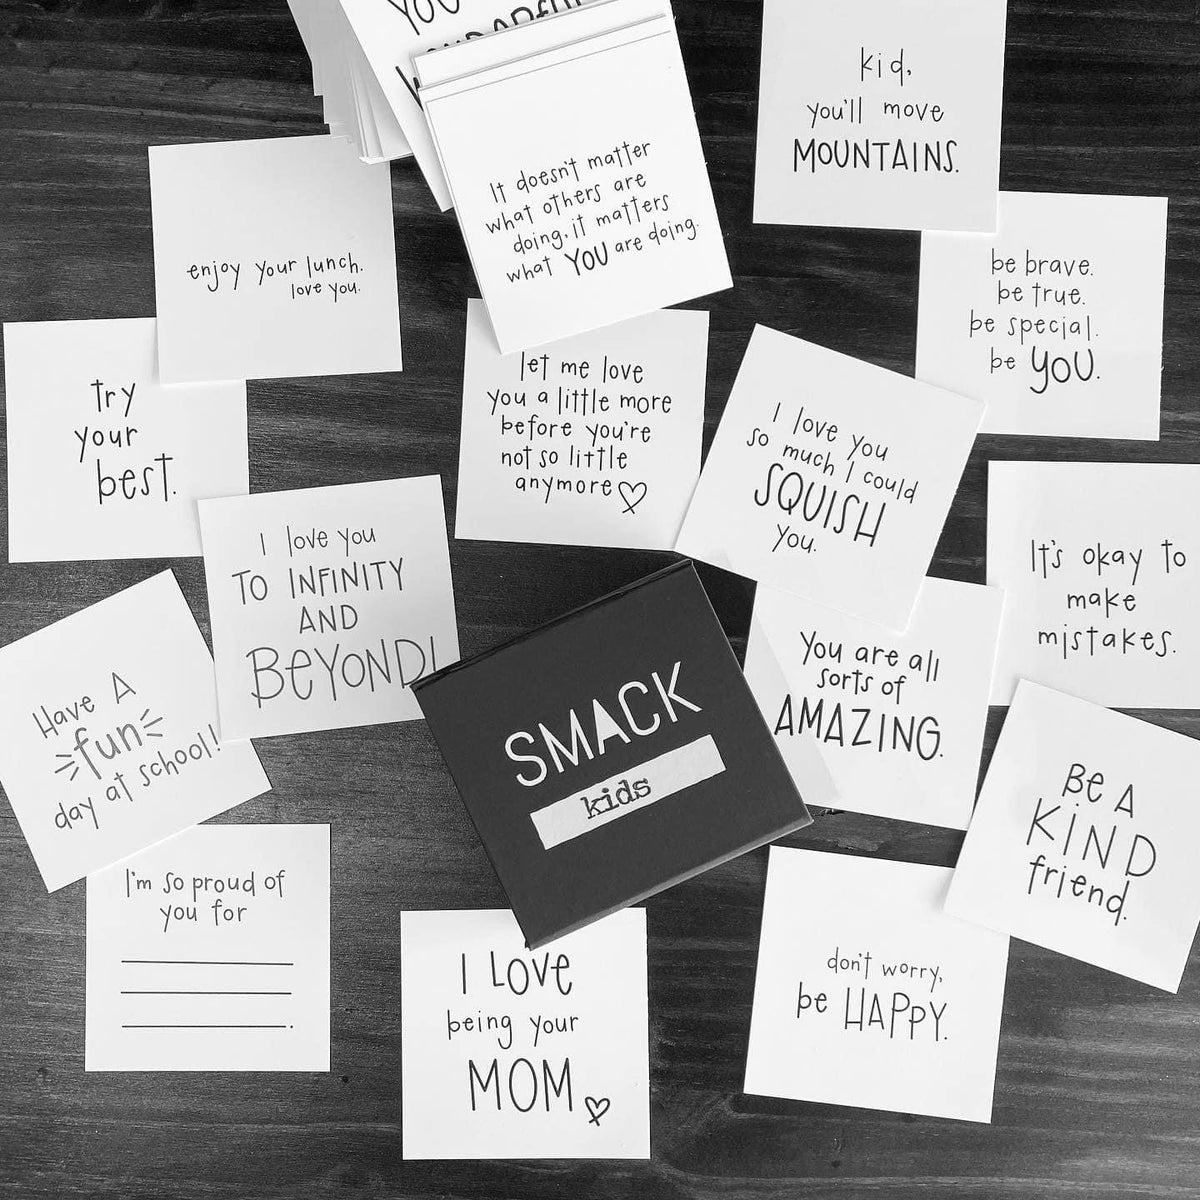 YOU
WONDERFUL
It doesn't matter
what others are
doing, it matters
what YOU are doing.
kid,
you'll move
MOUNTAINS.
enjoy your lunch.
love you.
be brave.
be true.
be special.
be YOU.
try
your
best.
let me love
you a little more
before you're
not so little
anymore
I love you
so much I could
SQUISH
you.
I love you
TO INFINITY
AND
BEYOND!
It's okay to
make
mistakes.
You are all
sorts of
AMAZING.
Have A
fun
day at school!
SMACK
kids
Be A
KIND
friend.
I'm so proud of
you for
I LOVE
being your
MOM
don't worry,
be HAPPY.